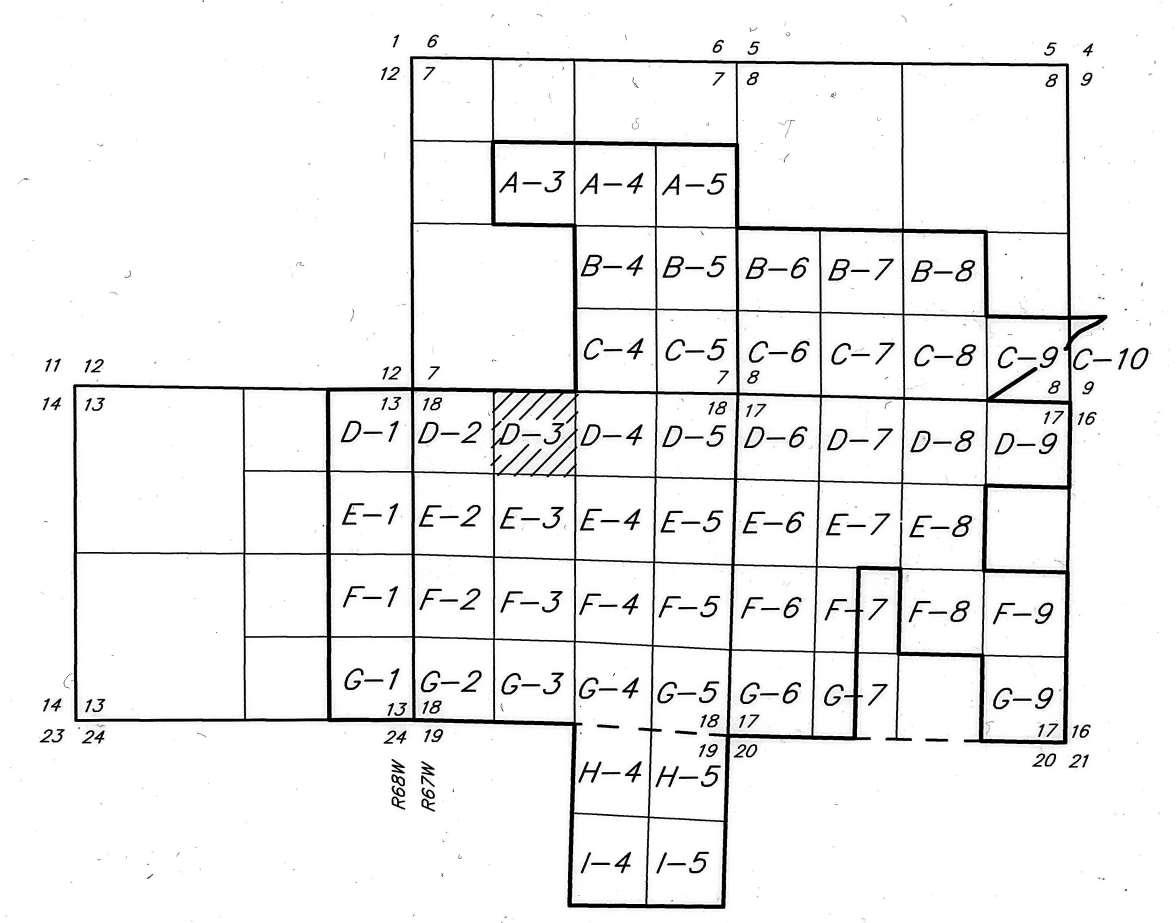 1 6 6 5 5 4
12 7 7 8 8 9
A-3 A-4 A-5
B-4 B-5 B-6 B-7 B-8
C-4 C-5 C-6 C-7 C-8 C-9 C-10
11 12 12 7 7 8 8 9
14 13 13 18 18 17 17 16
D-1 D-2 D-3 D-4 D-5 D-6 D-7 D-8 D-9
E-1 E-2 E-3 E-4 E-5 E-6 E-7 E-8
F-1 F-2 F-3 F-4 F-5 F-6 F-7 F-8 F-9
G-1 G-2 G-3 G-4 G-5 G-6 G-7 G-9
14 13 13 18 18 17 17 16
23 24 24 19 19 20 20 21
R68W
R67W
H-4 H-5
I-4 I-5